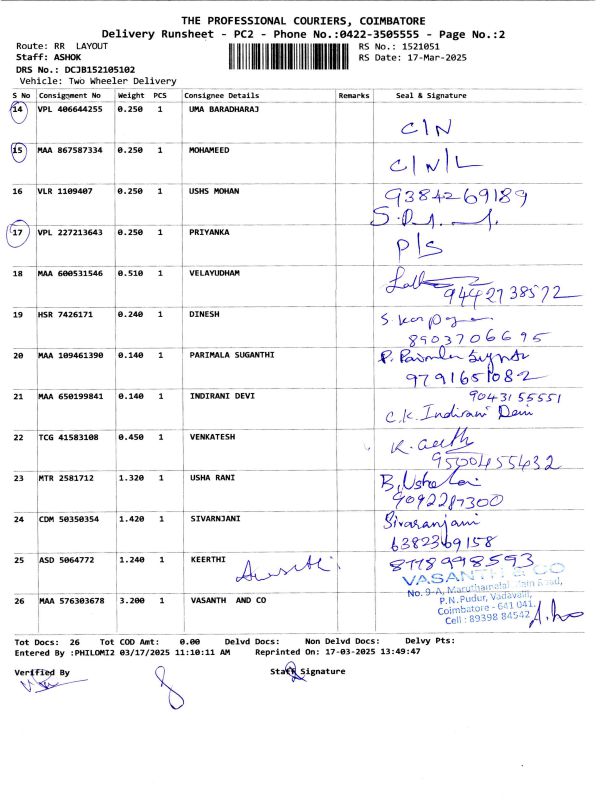 THE PROFESSIONAL COURIERS, COIMBATORE
Delivery Runsheet - PC2 - Phone No.:0422-3505555 - Page No.:2
Route: RR LAYOUT RS No.: 1521051
Staff: ASHOK RS Date: 17-Mar-2025
DRS No.: DCJB152105102
Vehicle: Two Wheeler Delivery
S No Consignment No Weight PCS Consignee Details Remarks Seal & Signature
14 VPL 406644255 0.250 1 UMA BARADHARAJ
C/N
15 MAA 867587334 0.250 1 MOHAMEED
C/N/L
16 VLR 1109407 0.250 1 USHS MOHAN 9384269189
17 VPL 227213643 0.250 1 PRIYANKA
P/S
18 MAA 600531546 0.510 1 VELAYUDHAM
9442738572
19 HSR 7426171 0.240 1 DINESH
8903706695
20 MAA 109461390 0.140 1 PARIMALA SUGANTHI
9791651082
21 MAA 650199841 0.140 1 INDIRANI DEVI 9043155551
C.K. Indirani Devi
22 TCG 41583108 0.450 1 VENKATESH
9500455432
23 MTR 2581712 1.320 1 USHA RANI B. Usha Rani
9092287300
24 CDM 50350354 1.420 1 SIVARNJANI Sivaranjani
6382369158
25 ASD 5064772 1.240 1 KEERTHI 8778998593
VASANTH & CO
No. 9-A, Maruthamalai Main Road,
P.N.Pudur, Vadavalli,
Coimbatore - 641 041.
Cell : 89398 84542
26 MAA 576303678 3.200 1 VASANTH AND CO
Tot Docs: 26 Tot COD Amt: 0.00 Delvd Docs: Non Delvd Docs: Delvy Pts:
Entered By :PHILOMI2 03/17/2025 11:10:11 AM Reprinted On: 17-03-2025 13:49:47
Verified By Staff Signature